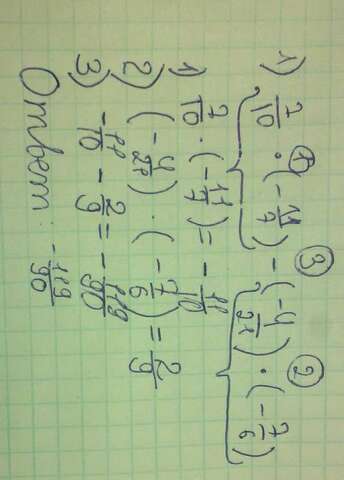 1) 7/10 · (-11/7) - (-4/21) · (-7/6)
1) 7/10 · (-11/7) = -11/10
2) (-4/21) · (-7/6) = 2/9
3) -11/10 - 2/9 = -119/90
Ответ: -119/90